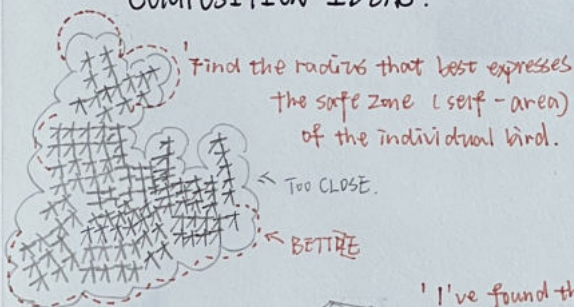 COMPOSITION IDEAS.
'Find the radius that best expresses
the safe zone (self-area)
of the individual bird.
← TOO CLOSE.
← BETTER
'I've found th